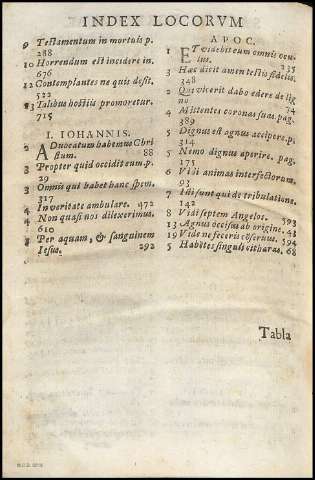 INDEX LOCORVM
9 Testamentum in mortuis p.
288
10 Horrendum est incidere in.
676
12 Contemplantes ne quis desit.
522
13 Talibus hostiis promoretur.
715
I. IOHANNIS.
2 ADuocatum habemus Chri
stum. 88
3 Propter quid occidit eum p.
29
3 Omnis qui habet hanc spem.
317
4 In veritate ambulare. 472
4 Non quasi nos dilexerimus.
610
5 Per aquam, & sanguinem
Iesus. 292
APOC.
1 ET videbit eum omnis ocu-
lus. 235
3 Haec dicit amen testis fidelis.
348
2 Qui vicerit dabo edere de lig
no 74
4 Mittentes coronas suas pag.
389
5 Dignus est agnus accipere p.
314
5 Nemo dignus aperire. pag.
175
6 Vidi animas interfectorum.
93
7 Isti sunt qui de tribulatione.
142
8 Vidi septem Angelos. 593
13 Agnus occisus ab origine. 43
19 Vide ne feceris cõseruus. 594
5 Habẽtes singuli citharas. 68
Tabla